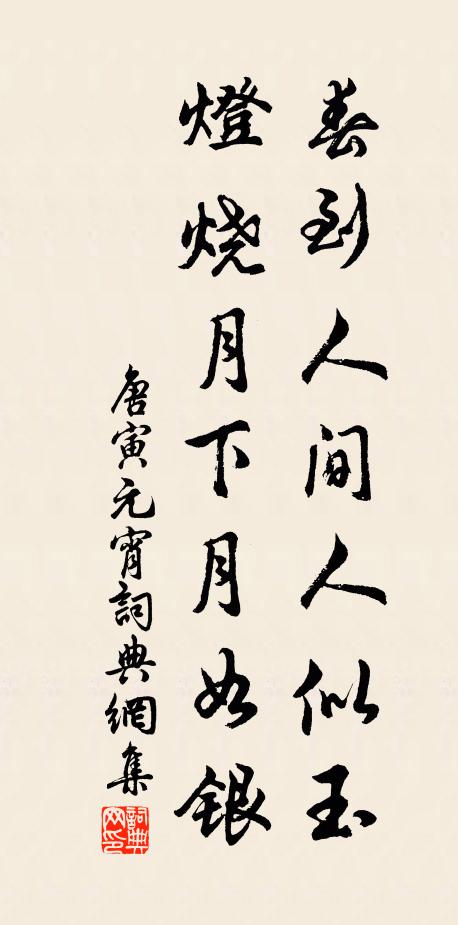 春到人间人似玉
燈烧月下月如银
唐寅元宵詞典網集
詞典
网印